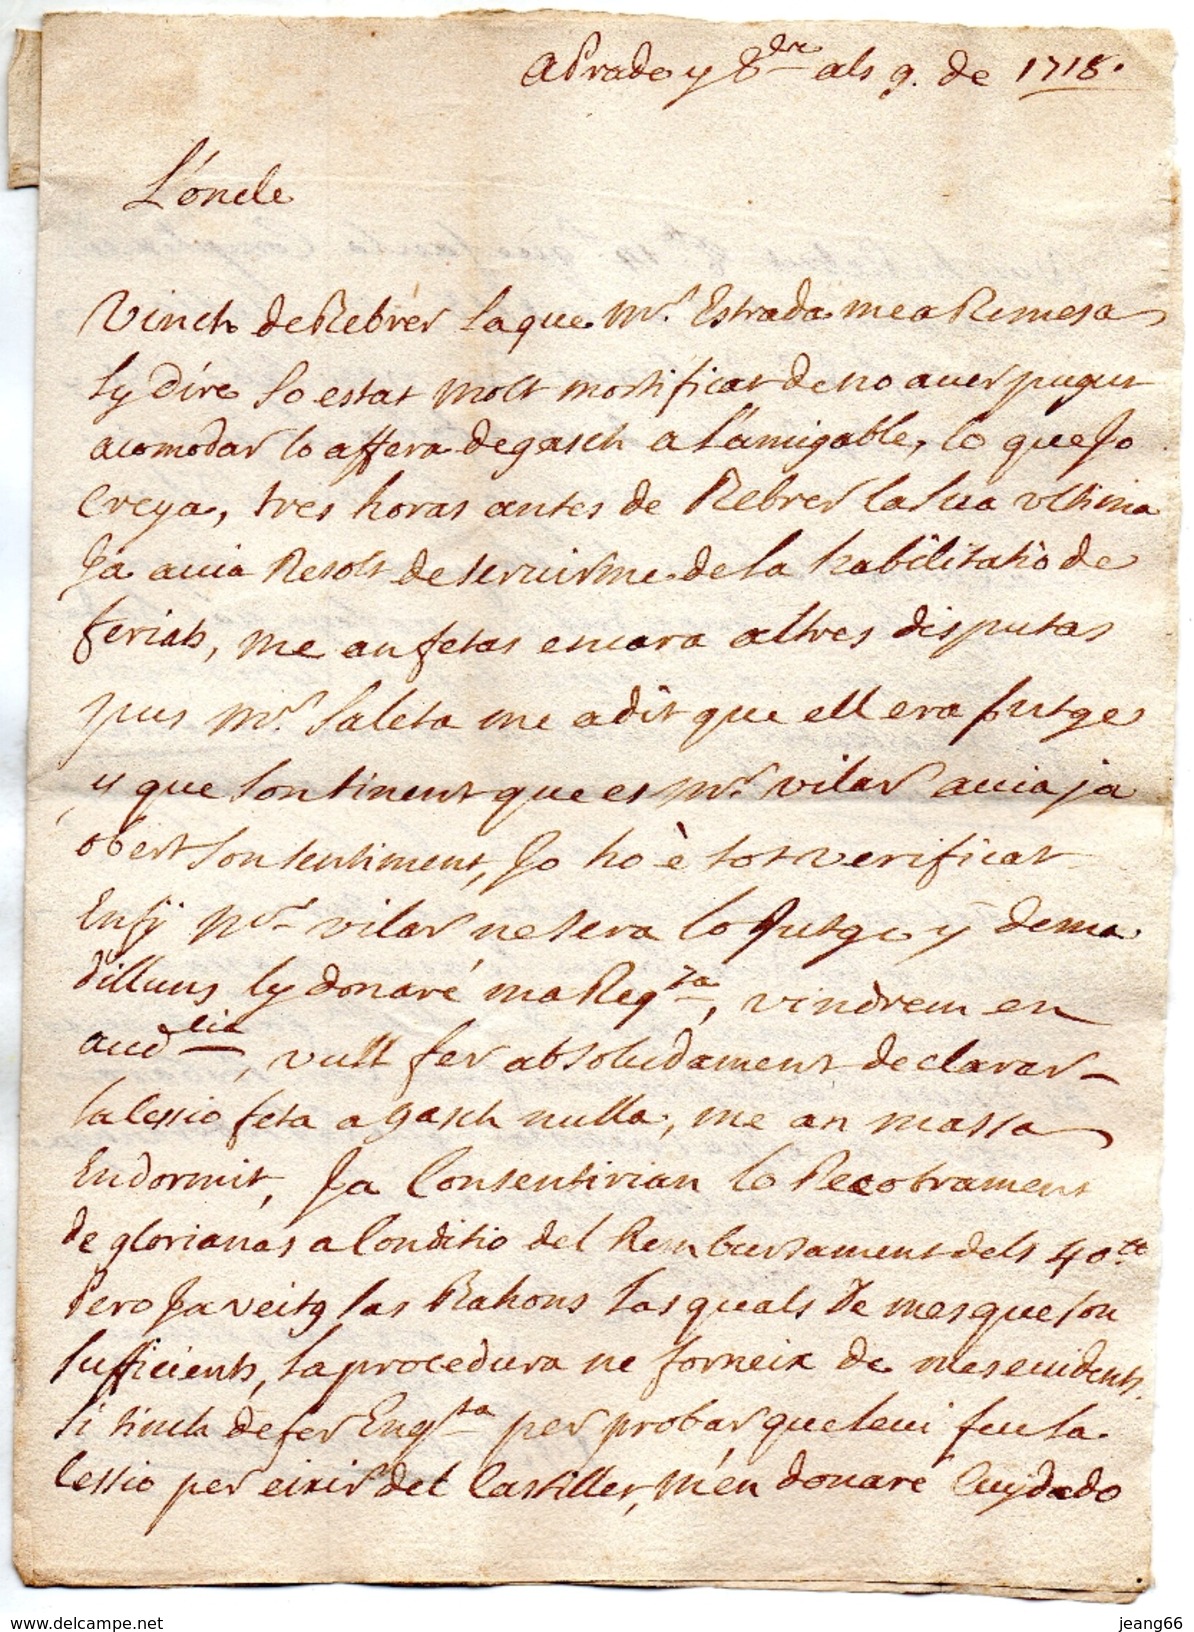 a Prade y 8bre als 9. de 1718.
L'óncle
Vinch de Rebrér la que Mr. Estrada me a Remesa
ly dire so estat molt mortificat de no aver pugut
acomodar lo affera de gasch a l'amigable, lo que Jo
creya, tres horas antes de Rebrer la sua ultima
Ja auia Resolt de servirme de la habilitatio de
feriats, me an fetas encara altres disputas
pus Mr. Saleta me a dit que ell era Jutge
y que son tinent que es Mr. vilar auia ja
obert son sentiment, Jo ho è tot verificat
Enfÿ Mr. vilar ne sera lo Jutge y dema
dilluns ly donaré ma Reqta, vindrem en
audcia, vull fer absoludament declarar
la lessio feta a gasch nulla, me an massa
Endormit, Ja consentirian lo Recobrament
de glorianas a conditio del Remborsament dels 40 tt
Pero Ja veitg las Rahons las quals de mes que son
sufficients, la procedura ne forneix de mes euidents.
si tinch de fer Enqta per probar que lo vi feu la
cessio per eixir del Castillet, m'en donaré Cuydado
www.delcampe.net
jeang66